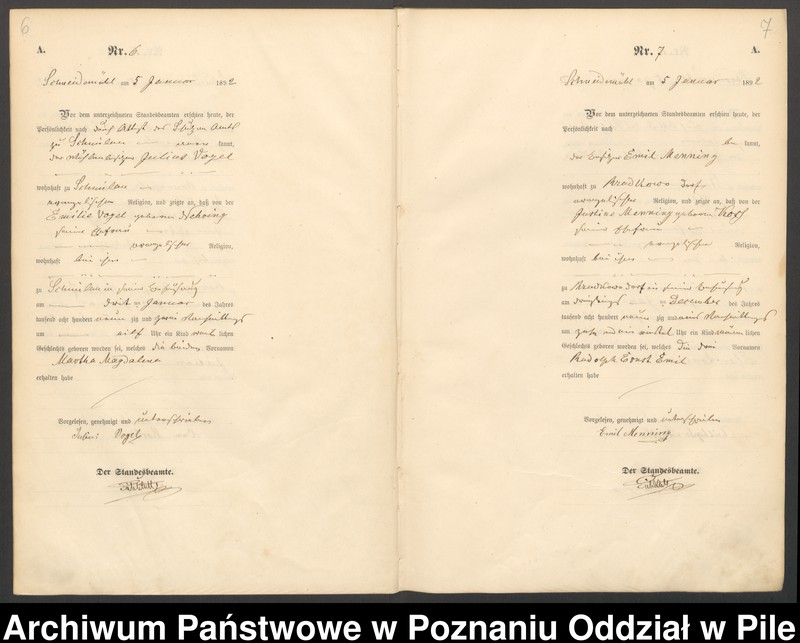 6
A.
Nr. 6.
Schneidemühl am 5 Januar 1892
Vor dem unterzeichneten Standesbeamten erschien heute, der
Persönlichkeit nach durch Attest des Amts
zu kannt,
der Julius Vogel
wohnhaft zu
evangelischer Religion, und zeigte an, daß von der
Emilie Vogel geborene Nehring
seiner Ehefrau
evangelischer Religion,
wohnhaft bei ihm
zu in seiner Behausung
am dritten Januar des Jahres
tausend acht hundert neun zig und zwei Nachmittags
am elf Uhr ein Kind weib lichen
Geschlechts geboren worden sei, welches die beiden Vornamen
Martha Magdalena
erhalten habe
Vorgelesen, genehmigt und unterschrieben
Julius Vogel
Der Standesbeamte.
7
Nr. 7
A.
Schneidemühl am 5 Januar 1892
Vor dem unterzeichneten Standesbeamten erschien heute, der
Persönlichkeit nach
be kannt,
der Besitzer Emil Menning
wohnhaft zu Dorf
evangelischer Religion, und zeigte an, daß von der
Justine Menning geborene
seiner Ehefrau
evangelischer Religion,
wohnhaft bei ihm
zu Dorf in seiner Behausung
am dreißigsten December des Jahres
tausend acht hundert neun zig und eins Nachmittags
um zehn und ein Uhr ein Kind männ lichen
Geschlechts geboren worden sei, welches die drei Vornamen
Rudolph Ernst Emil
erhalten habe
Vorgelesen, genehmigt und unterschrieben
Emil Menning
Der Standesbeamte.
Archiwum Państwowe w Poznaniu Oddział w Pile